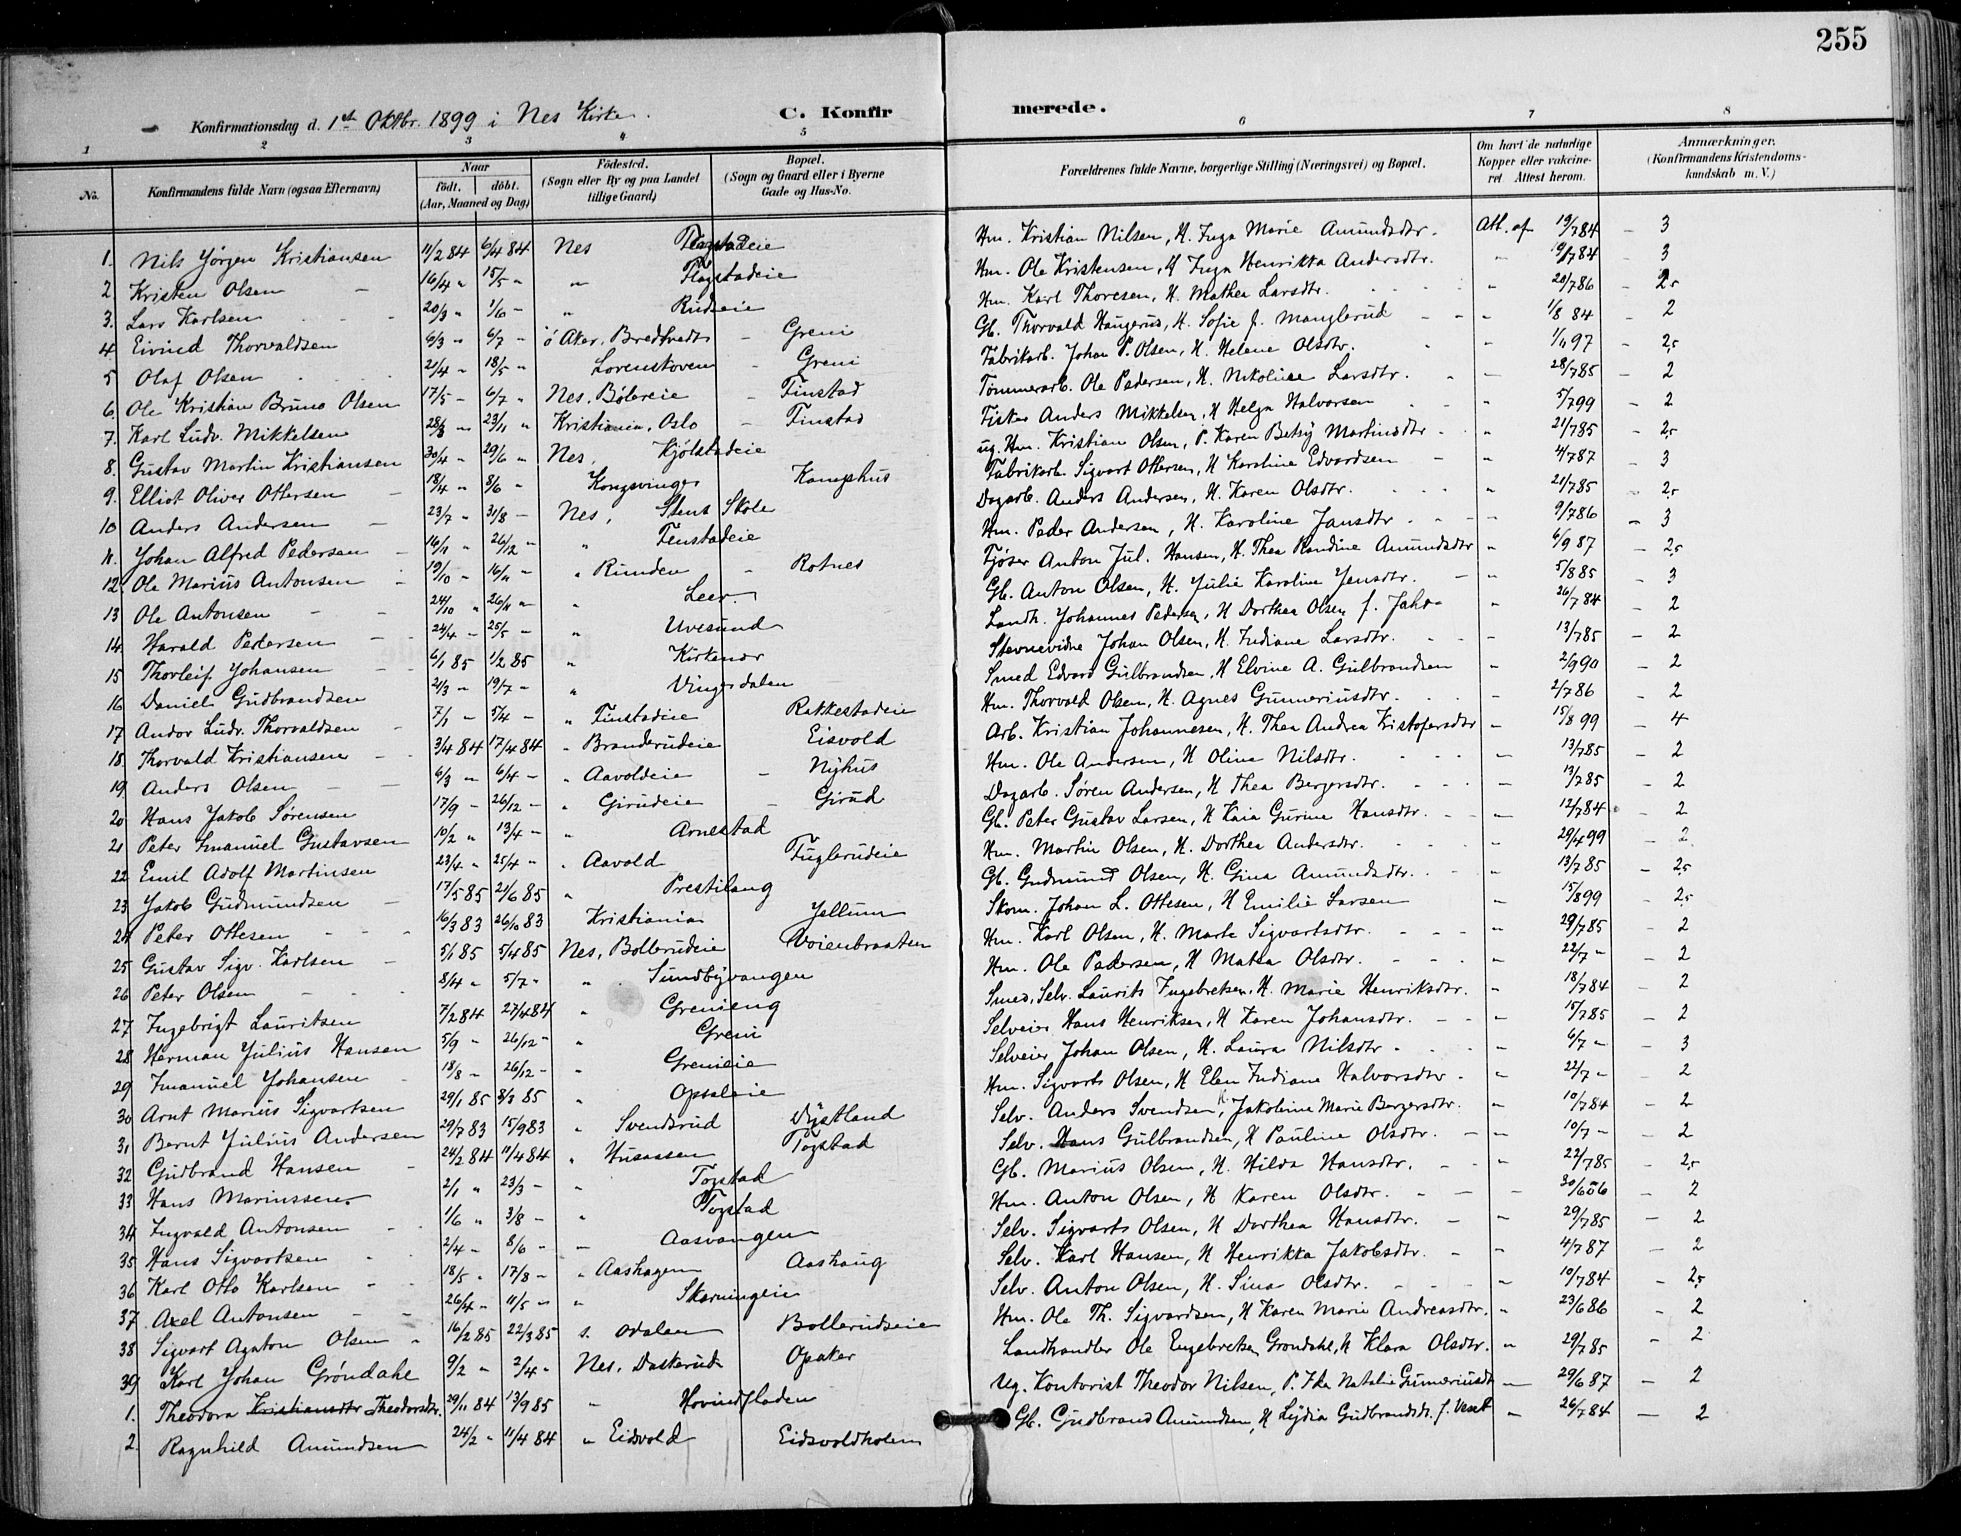 255
Konfirmationsdag d. 1st Oktbr. 1899 i Nes Kirke. C. Konfirmerede.
1 2 3 4 5 6 7 8
No. Konfirmandens fulde Navn (ogsaa Efternavn) Naar født. døbt. (Aar, Maaned og Dag) Fødested. (Sogn eller By og paa Landet tillige Gaard) Bopæl. (Sogn og Gaard eller i Byerne Gade og Hus-No. Forældrenes fulde Navne, borgerlige Stilling (Næringsvei) og Bopæl. Om havt de naturlige Kopper eller vakcineret Attest herom. Anmærkninger. (Konfirmandens Kristendomskundskab m. V.)
1. Nils Jørgen Kristiansen 11/2 84 6/4 84 Nes Hm. Kristian Nilsen, H. Inga Marie Amundsdtr. Att. af 19/7 84 – 3
2. Kristen Olsen 16/4 " 15/5 " " Flagstadeie Hm. Ole Kristensen, H. Inga Henrikka Andersdtr. " 19/7 84 – 3
3. Lars Karlsen 20/3 " 1/6 – " Rudeie Hm. Karl Thoresen, H. Mathea Larsdtr. " 20/7 86 – 2,5
4. Eivind Thorvaldsen 6/3 " 6/7 – ø Aker, Bredtvedt – Greni Gb. Thorvald Haugerud, H. Sofie f. Manglerud " 1/8 84 – 2
5 Olaf Olsen 21/4 " 18/5 " Lorenstoven – Greni Fabrikarb. Johan P. Olsen, H. Helene Olsdtr. " 97 – 2,5
6. Ole Kristian Bruno Olsen 17/5 – 6/7 " Nes, Bølereie – Finstad Tømmerarb. Ole Pedersen, H. Nikoline Larsdtr. " 28/7 85 – 2
7. Karl Ludv. Mikkelsen 28/3 " 23/11 " Kristiania, Oslo – Finstad Fisker Anders Mikkelsen, H Helga Halvorsen " 5/7 99 – 2
8. Gustav Martin Kristiansen 30/4 – 29/6 – Nes, Kjølstadeie ug. Hm. Kristian Olsen, P. Karen Betsy Martinsdtr " 21/7 85 – 2,5
9. Elliot Oliver Ottersen 18/4 " 8/6 " Kongsvinger Kamphus Fabrikarb. Sigvart Ottersen, H Karoline Edvardsen " 4/7 87 – 3
10 Anders Andersen 23/7 " 31/8 – Nes, Stent Skole Dagarb. Anders Andersen, H. Karen Olsdtr. " 21/7 85 – 2,5
11. Johan Alfred Pedersen 16/11 " 26/12 – " Finstadeie Hm. Peder Andersen, H. Karoline Jansdtr – 9/7 86 – 3
12. Ole Marius Antonsen 19/10 – 16/11 – " Runden – Rotnes Fjøser Anton Jul. Hansen, H. Thea Randine Amundsdtr " 6/9 87 – 2,5
13 Ole Antonsen 24/10 " 26/11 – " Leer Gb. Anton Olsen, H. Julie Karoline Jensdtr. – " 5/8 85 – 3
14. Harald Pedersen 24/4 – 25/5 – " Uvesund Landh. Johannes Pedersen, H Dorthea Olsen " 26/7 84 – 2
15 Thorleif Johansen 6/1 85 1/2 85 " Kirkenor Stevnevidne Johan Olsen, H. Indiane Larsdtr. " 13/7 85 – 2
16 Daniel Gudbrandsen 21/3 – 19/7 – " Vingersdalen Smed Edvard Gulbrandsen, H Elvine A. Gulbrandsen " 2/9 90 – 2
17 Andor Ludv. Thorvaldsen 7/1 – 5/4 – " Finstadeie Rakkestadeie Hm. Thorvald Olsen, H. Agnes Gunneriusdtr. " 2/7 86 – 2
18. Thorvald Kristiansen 3/4 84 17/4 84 " Branderudeie Eisvold Arb. Kristian Johannesen, H. Thea Andrea Kristofersdtr – 15/8 99 – 4
19. Anders Olsen 6/3 – 6/4 – " Aavoldeie – Nyhus Hm. Ole Andersen, H Oline Nilsdtr. – 13/7 85 – 2
20 Hans Jakob Sørensen 17/9 – 26/12 – " Girudeie – Girud Dagarb. Søren Andersen, H Thea Bergersdtr. – 13/7 85 – 2
21 Peter Imanuel Gustavsen 10/2 " 13/4 – " Arnestad Gb. Peter Gustav Larsen, H Kaia Gurine Hansdtr. – 12/7 84 – 2
22 Emil Adolf Martinsen 23/4 " 25/4 " " Aavold Fuglerudeie Hm. Martin Olsen, H. Dorthea Andersdtr. " 29/4 99 – 2
23 Jakob Gudmundsen 17/5 85 21/6 85 " Prestilang Gb. Gudmund Olsen, H. Gina Amundsdtr. " 13/7 85 – 2,5
24 Peter Ottesen 16/3 83 26/10 83 Kristiania Jellum Skom. Johan L. Ottesen, H Emilie Larsen " 15/8 99 – 2,5
25 Gustav Sigv. Karlsen 5/1 85 5/4 85 Nes, Bollerudeie Voienbraaten Hm. Karl Olsen, H. Marte Sigvartsdtr. – 29/7 85 – 2
26 Peter Olsen 8/4 " 5/7 " " Sundbyvangen Hm. Ole Pedersen, H Matea Olsdtr. – 22/7 – – 2
27 Ingebrigt Lauritsen 7/2 84 27/4 84 " Grenieng Smed, Selv. Laurits Ingebretsen, H. Marie Henriksdtr. " 18/7 84 – 2
28 Herman Julius Hansen 5/9 " 26/12 – " Greni Selveier Hans Henriksen, H Karen Johansdtr. – – 15/7 85 – 2
29 Imanuel Johansen 18/8 – 26/12 – " Grenieie Selveier Johan Olsen, H. Laura Nilsdtr – 6/7 – – 3
30 Arnt Marius Sigvartsen 29/1 85 8/3 85 " Opsaleie Hm. Sigvarts Olsen, H Elen Indiane Halvorsdtr – 22/7 – – 2
31 Bernt Julius Andersen 29/7 83 15/9 83 " Svendsrud Dystland Selv. Anders Svendsen, H. Jakobine Marie Bergersdtr. – 10/7 84 – 2
32 Gudbrand Hansen 24/2 84 11/4 84 " Husaasen Togstad Selv. Hans Gulbrandsen, H Pauline Olsdtr. – 10/7 – – 2
33 Hans Mariussen 2/1 " 23/3 – " Togstad Gb. Marius Olsen, H. Hilda Hansdtr. – 22/7 85 – 2,5
34 Ingvald Antonsen 1/6 " 3/8 – " Togstad Hm. Anton Olsen, H Karen Olsdtr. – – – 2
35 Hans Sigvartsen 2/4 – 8/6 – – Aasvangen Selv. Sigvarts Olsen, H Dorthea Hansdtr. – – 29/7 85 – 2
36 Karl Otto Karlsen 18/5 " 17/8 – " Aashagen Aashaug Selv. Karl Hansen, H Henrikka Jakobsdtr. – " 4/7 87 – 2
37 Axel Antonsen 26/4 " 11/5 – " Skarningeie Selv. Anton Olsen, H. Sina Olsdtr. – 10/7 84 – 2,5
38 Sigvart Agaton Olsen 16/2 85 22/3 85 s. Odalen Bollerudseie Hm. Ole Th. Sigvardsen, H Karen Marie Andreasdtr. " 23/6 86 – 2
39 Karl Johan Grøndahl 9/2 " 2/4 " Nes, Daskerud Opaker Landhandler Ole Engebretsen Grøndahl, H Klara Olsdtr. " 29/7 85 – 2
1. Theodora Kristiansdtr Theodorsdtr. 29/11 84 13/9 85 " Hovindfladen Ug. Kontorist Theodor Nilsen, P. Ida Natalie Gunneriusdt – 29/6 87 – 2
2. Ragnhild Amundsen 24/2 " 11/4 84 " Eidsvold Eidsvoldholen Gb. Gudbrand Amundsen, H Lydia Gudbrandsdt. f. – 26/7 84 – 2